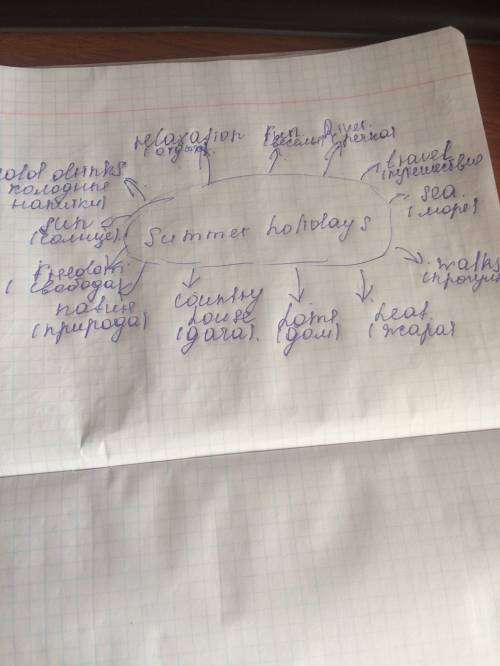 relaxation
(отдых)
Fun
(веселье)
River
(речка)
travel
(путешествие
sea
(море)
walks
(прогул
heat
(жара)
home
(дом)
country
house
(дача)
nature
(природа)
Freedom
(свобода)
sun
(солнце)
cold drinks
холодные
напитки)
Summer holidays